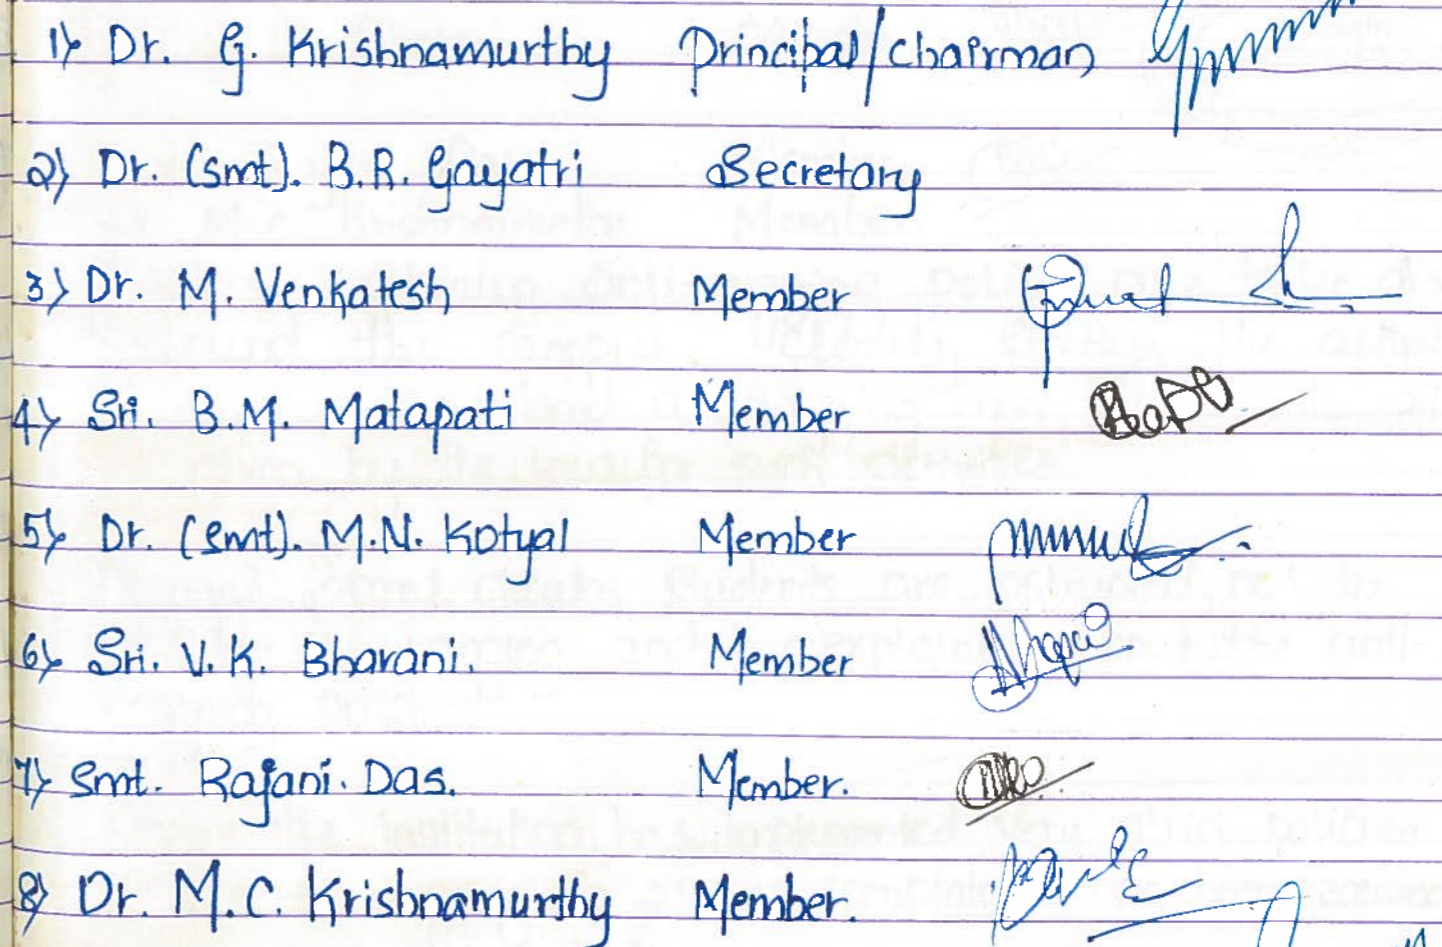 1) Dr. G. Krishnamurthy Principal/Chairman
2) Dr. (Smt). B.R. Gayatri Secretary
3) Dr. M. Venkatesh Member
4) Sri. B.M. Matapati Member
5) Dr. (Smt). M.N. Kotyal Member
6) Sri. V.K. Bhavani. Member
7) Smt. Rajani. Das. Member.
8) Dr. M.C. Krishnamurthy Member.